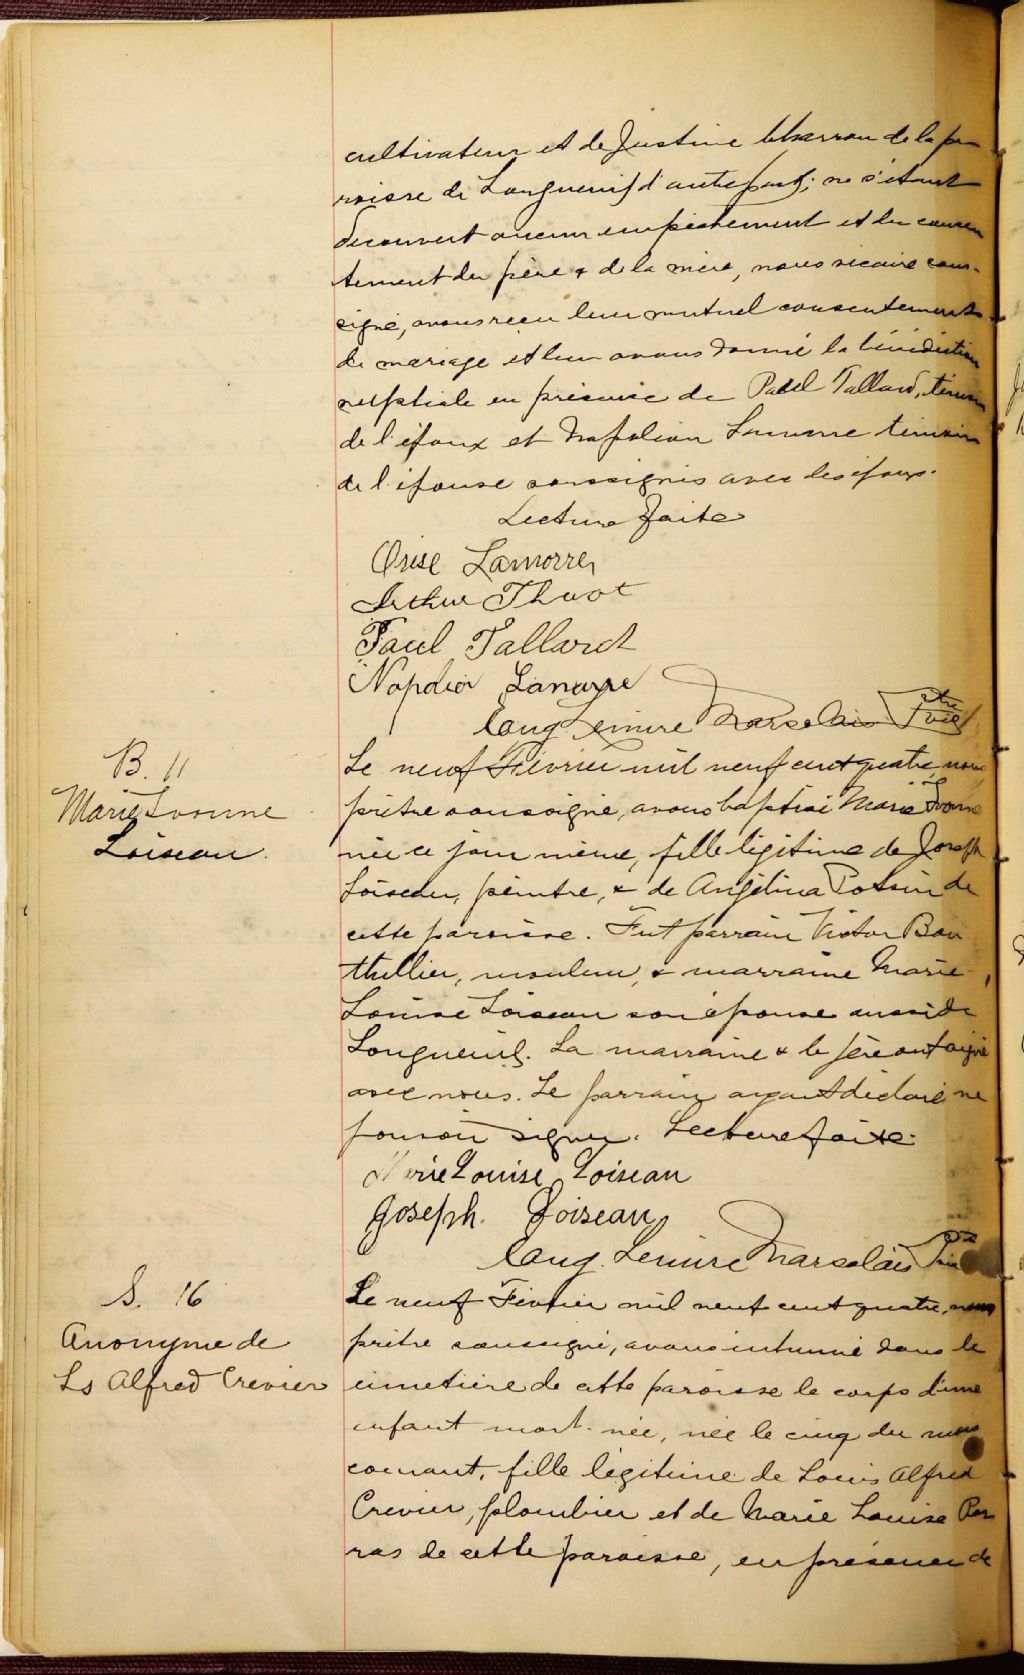 cultivateur et de Justine Charron de la pa
roisse de Longueuil d'autre part; ne s'étant
découvert aucun empêchement et du consen
tement du père & de la mère, nous vicaire sous-
signé, avons reçu leur mutuel consentement
de mariage et leur avons donné la bénédiction
nuptiale en présence de Paul Tallard, témoin
de l'époux et Napoléon Lamarre témoin
de l'épouse soussignés avec les époux.
Lecture faite
Orise Lamarre
Arthur Thuot
Paul Tallard
Napoléon Lamarre
Cong. Lemire Marsolais Ptre Vic
B. 11
Marie Ivonne
Loiseau.
Le neuf Février mil neuf cent quatre, nous
prêtre soussigné, avons baptisé Marie Ivonne
née ce jour même, fille légitime de Joseph
Loiseau, peintre, & de Angélina Potvin de
cette paroisse. Fut parrain Victor Bou
thillier, mouleur, & marraine Marie
Louise Loiseau son épouse aussi de
Longueuil. La marraine & le père ont signé
avec nous. Le parrain ayant déclaré ne
pouvoir signer. Lecture faite.
Marie Louise Loiseau
Joseph. Loiseau
Cong. Lemire Marsolais Ptre
S. 16
Anonyme de
Ls Alfred Crevier
Le neuf Février mil neuf cent quatre, nous
prêtre soussigné, avons inhumé dans le
cimetière de cette paroisse le corps d'une
enfant mort-née, née le cinq du mois
courant, fille légitime de Louis Alfred
Crevier, plombier et de Marie Louise Par
ras de cette paroisse, en présence de